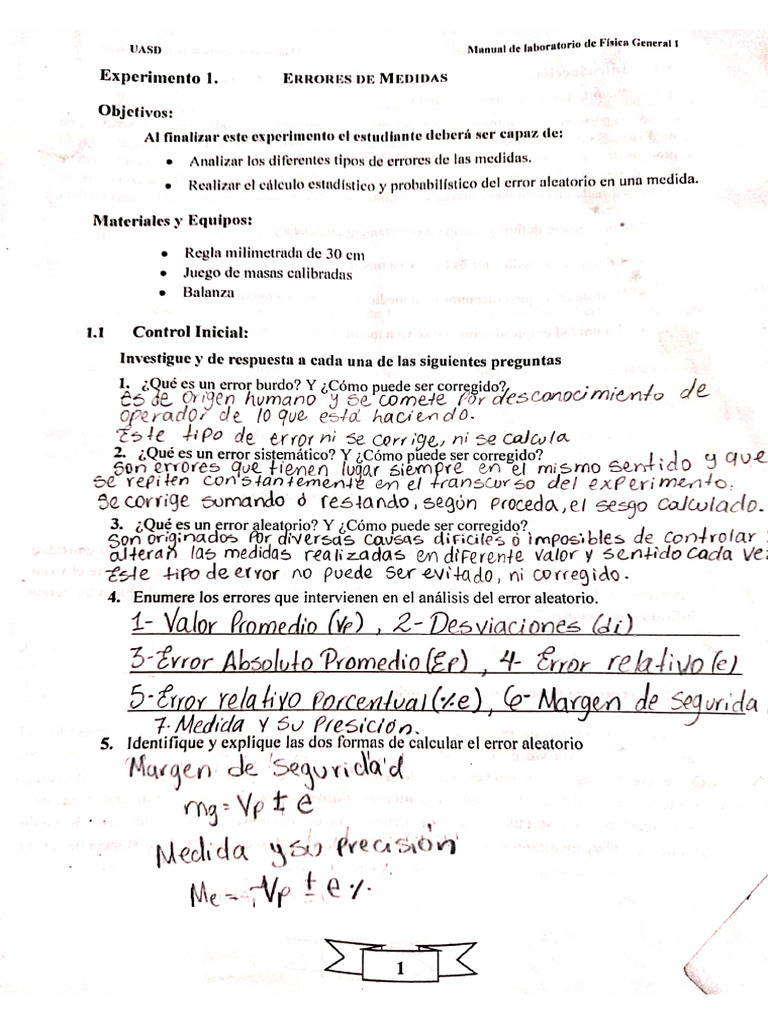 UASD Manual de laboratorio de Física General 1
Experimento 1. ERRORES DE MEDIDAS
Objetivos:
Al finalizar este experimento el estudiante deberá ser capaz de:
• Analizar los diferentes tipos de errores de las medidas.
• Realizar el cálculo estadístico y probabilístico del error aleatorio en una medida.
Materiales y Equipos:
• Regla milimetrada de 30 cm
• Juego de masas calibradas
• Balanza
1.1 Control Inicial:
Investigue y de respuesta a cada una de las siguientes preguntas
1. ¿Qué es un error burdo? Y ¿Cómo puede ser corregido?
es de origen humano y se comete por desconocimiento de
operador de lo que está haciendo.
Este tipo de error ni se corrige, ni se calcula
2. ¿Qué es un error sistemático? Y ¿Cómo puede ser corregido?
son errores que tienen lugar siempre en el mismo sentido y que
se repiten constantemente en el transcurso del experimento.
Se corrige sumando ó restando, según proceda, el sesgo calculado.
3. ¿Qué es un error aleatorio? Y ¿Cómo puede ser corregido?
son originados por diversas causas dificiles o imposibles de controlar
alteran las medidas realizadas en diferente valor y sentido cada vez
Este tipo de error no puede ser evitado, ni corregido.
4. Enumere los errores que intervienen en el análisis del error aleatorio.
1- Valor Promedio (Vp), 2- Desviaciones (di)
3-Error Absoluto Promedio (Ep), 4- Error relativo (e)
5-Error relativo porcentual (%e), 6- Margen de segurida
7. Medida y su Presición.
5. Identifique y explique las dos formas de calcular el error aleatorio
Margen de seguridad
mg = Vp ± e
Medida y su precisión
Me = Vp ± e %
1